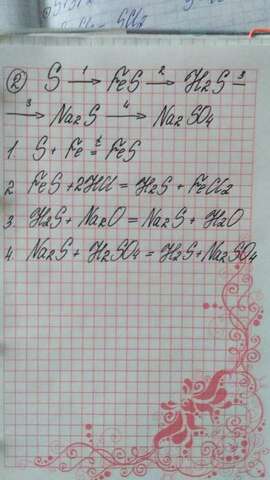 ② S →¹ FeS →² H₂S →³
→ Na₂S →⁴ Na₂SO₄
1. S + Fe =ᵗ FeS
2. FeS + 2HCl = H₂S + FeCl₂
3. H₂S + Na₂O = Na₂S + H₂O
4. Na₂S + H₂SO₄ = H₂S + Na₂SO₄